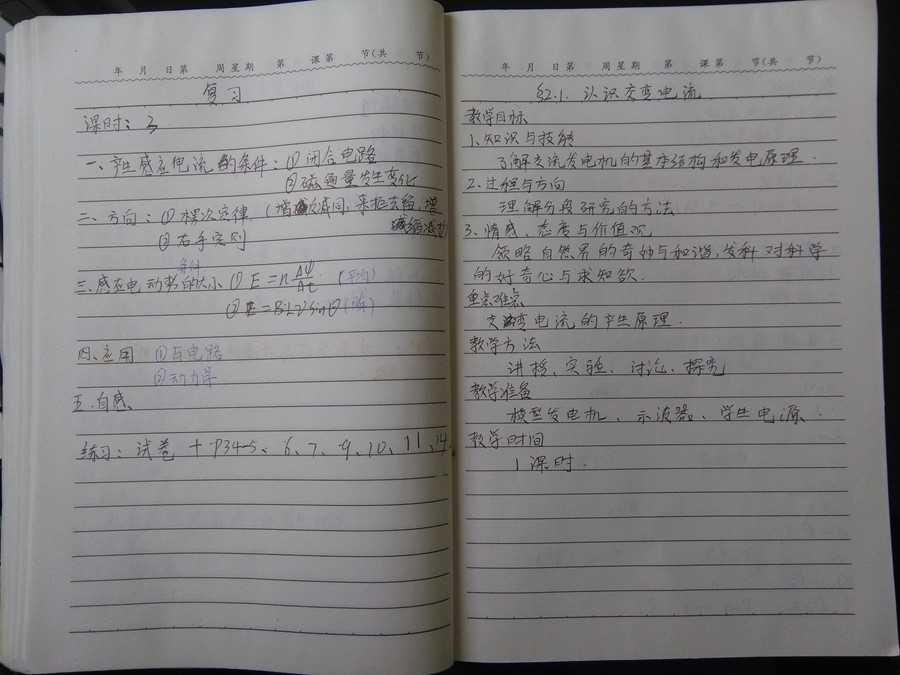 年 月 日第 周星期 第 课第 节(共 节)
复习
课时：3
一、产生感应电流的条件：① 闭合电路
② 磁通量发生变化
二、方向：① 楞次定律 (增反减同、来拒去留、增缩减扩
② 右手定则
三、感应电动势的大小 ① E=n ΔΨ/Δt (平均)
② E=BLVSinθ (瞬)
四、应用 ①与电路
②动力学
五、自感、
练习：试卷 + P34-5、6、7、9、10、11、14.
年 月 日第 周星期 第 课第 节(共 节)
§2.1. 认识交变电流
教学目标
1、知识与技能
了解交流发电机的基本结构和发电原理.
2. 过程与方向
理解分段研究的方法
3、情感、态度与价值观
领略自然界的奇妙与和谐,发料对科学
的好奇心与求知欲.
重点难点
交变电流的产生原理.
教学方法
讲授、实验、讨论、探究
教学准备
模型发电机、示波器、学生电源.
教学时间
1课时.